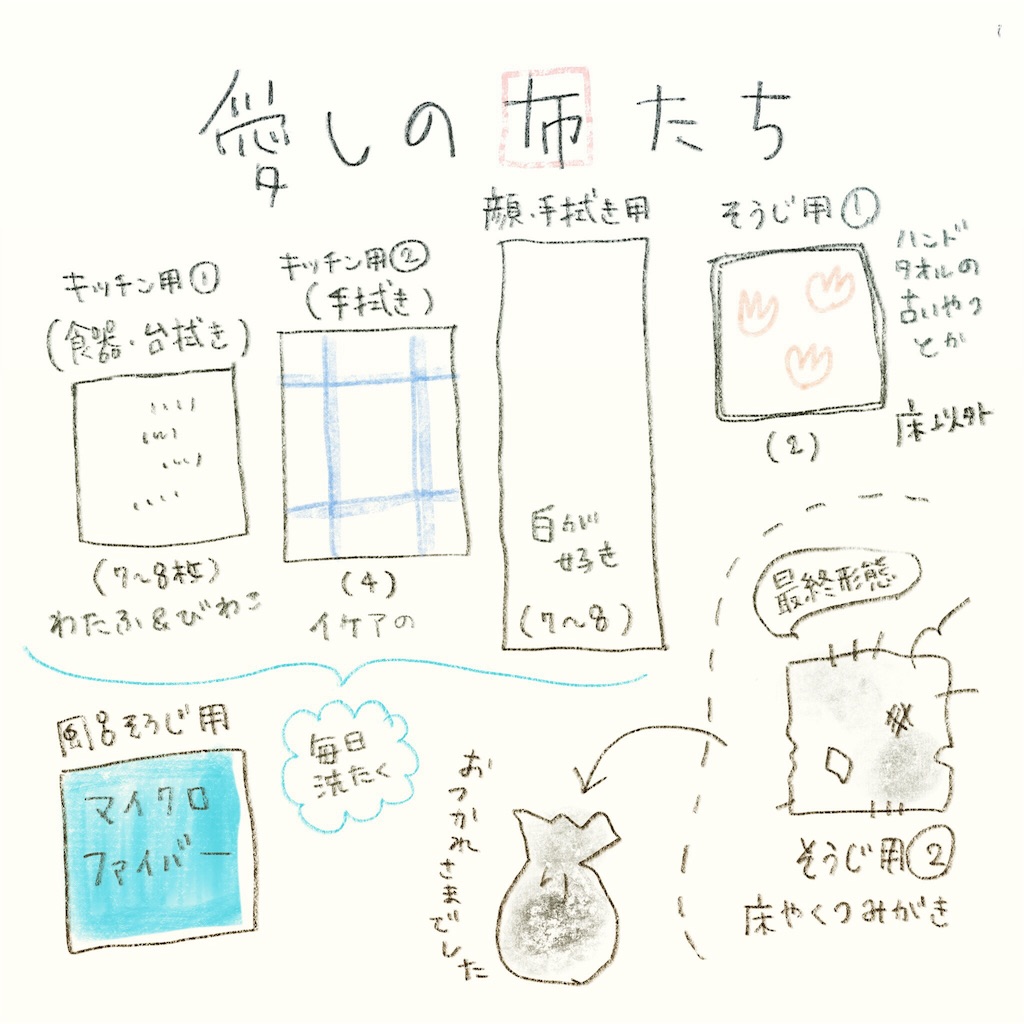 愛しの布たち
キッチン用①
(食器・台拭き)
(7〜8枚)
わたふ&びわこ
キッチン用②
(手拭き)
(4)
イケアの
顔・手拭き用
白が
好き
(7〜8)
そうじ用①
ハンド
タオルの
古いやつ
とか
床以外
(2)
毎日
洗たく
風呂そうじ用
マイクロ
ファイバー
最終形態
そうじ用②
床やくつみがき
おつかれさまでした